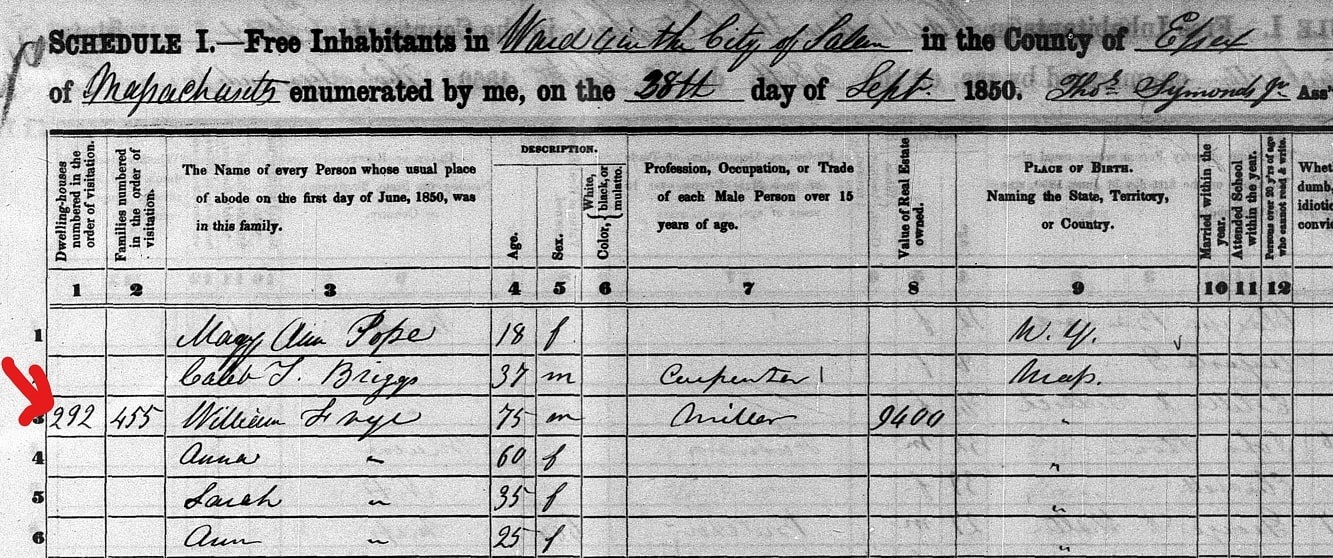 SCHEDULE I.—Free Inhabitants in Ward 4 in the City of Salem in the County of Essex
of Massachusetts enumerated by me, on the 28th day of Sept. 1850. Thos. Symonds Jr. Ass't
Dwelling-houses numbered in the order of visitation.
Families numbered in the order of visitation.
The Name of every Person whose usual place of abode on the first day of June, 1850, was in this family.
DESCRIPTION.
Age.
Sex.
Color, { White, black, or mulatto.
Profession, Occupation, or Trade of each Male Person over 15 years of age.
Value of Real Estate owned.
PLACE OF BIRTH. Naming the State, Territory, or Country.
Married within the year.
Attended School within the year.
Persons over 20 y'rs of age who cannot read & write.
Whet
dumb,
idiotic
convic
1 2 3 4 5 6 7 8 9 10 11 12
1 Mary Ann Pope 18 f N. Y.
Caleb T. Briggs 37 m Carpenter Mass.
3 292 455 William Frye 75 m Miller 9400 "
4 Anna " 60 f "
5 Sarah " 35 f "
6 Ann " 25 f "